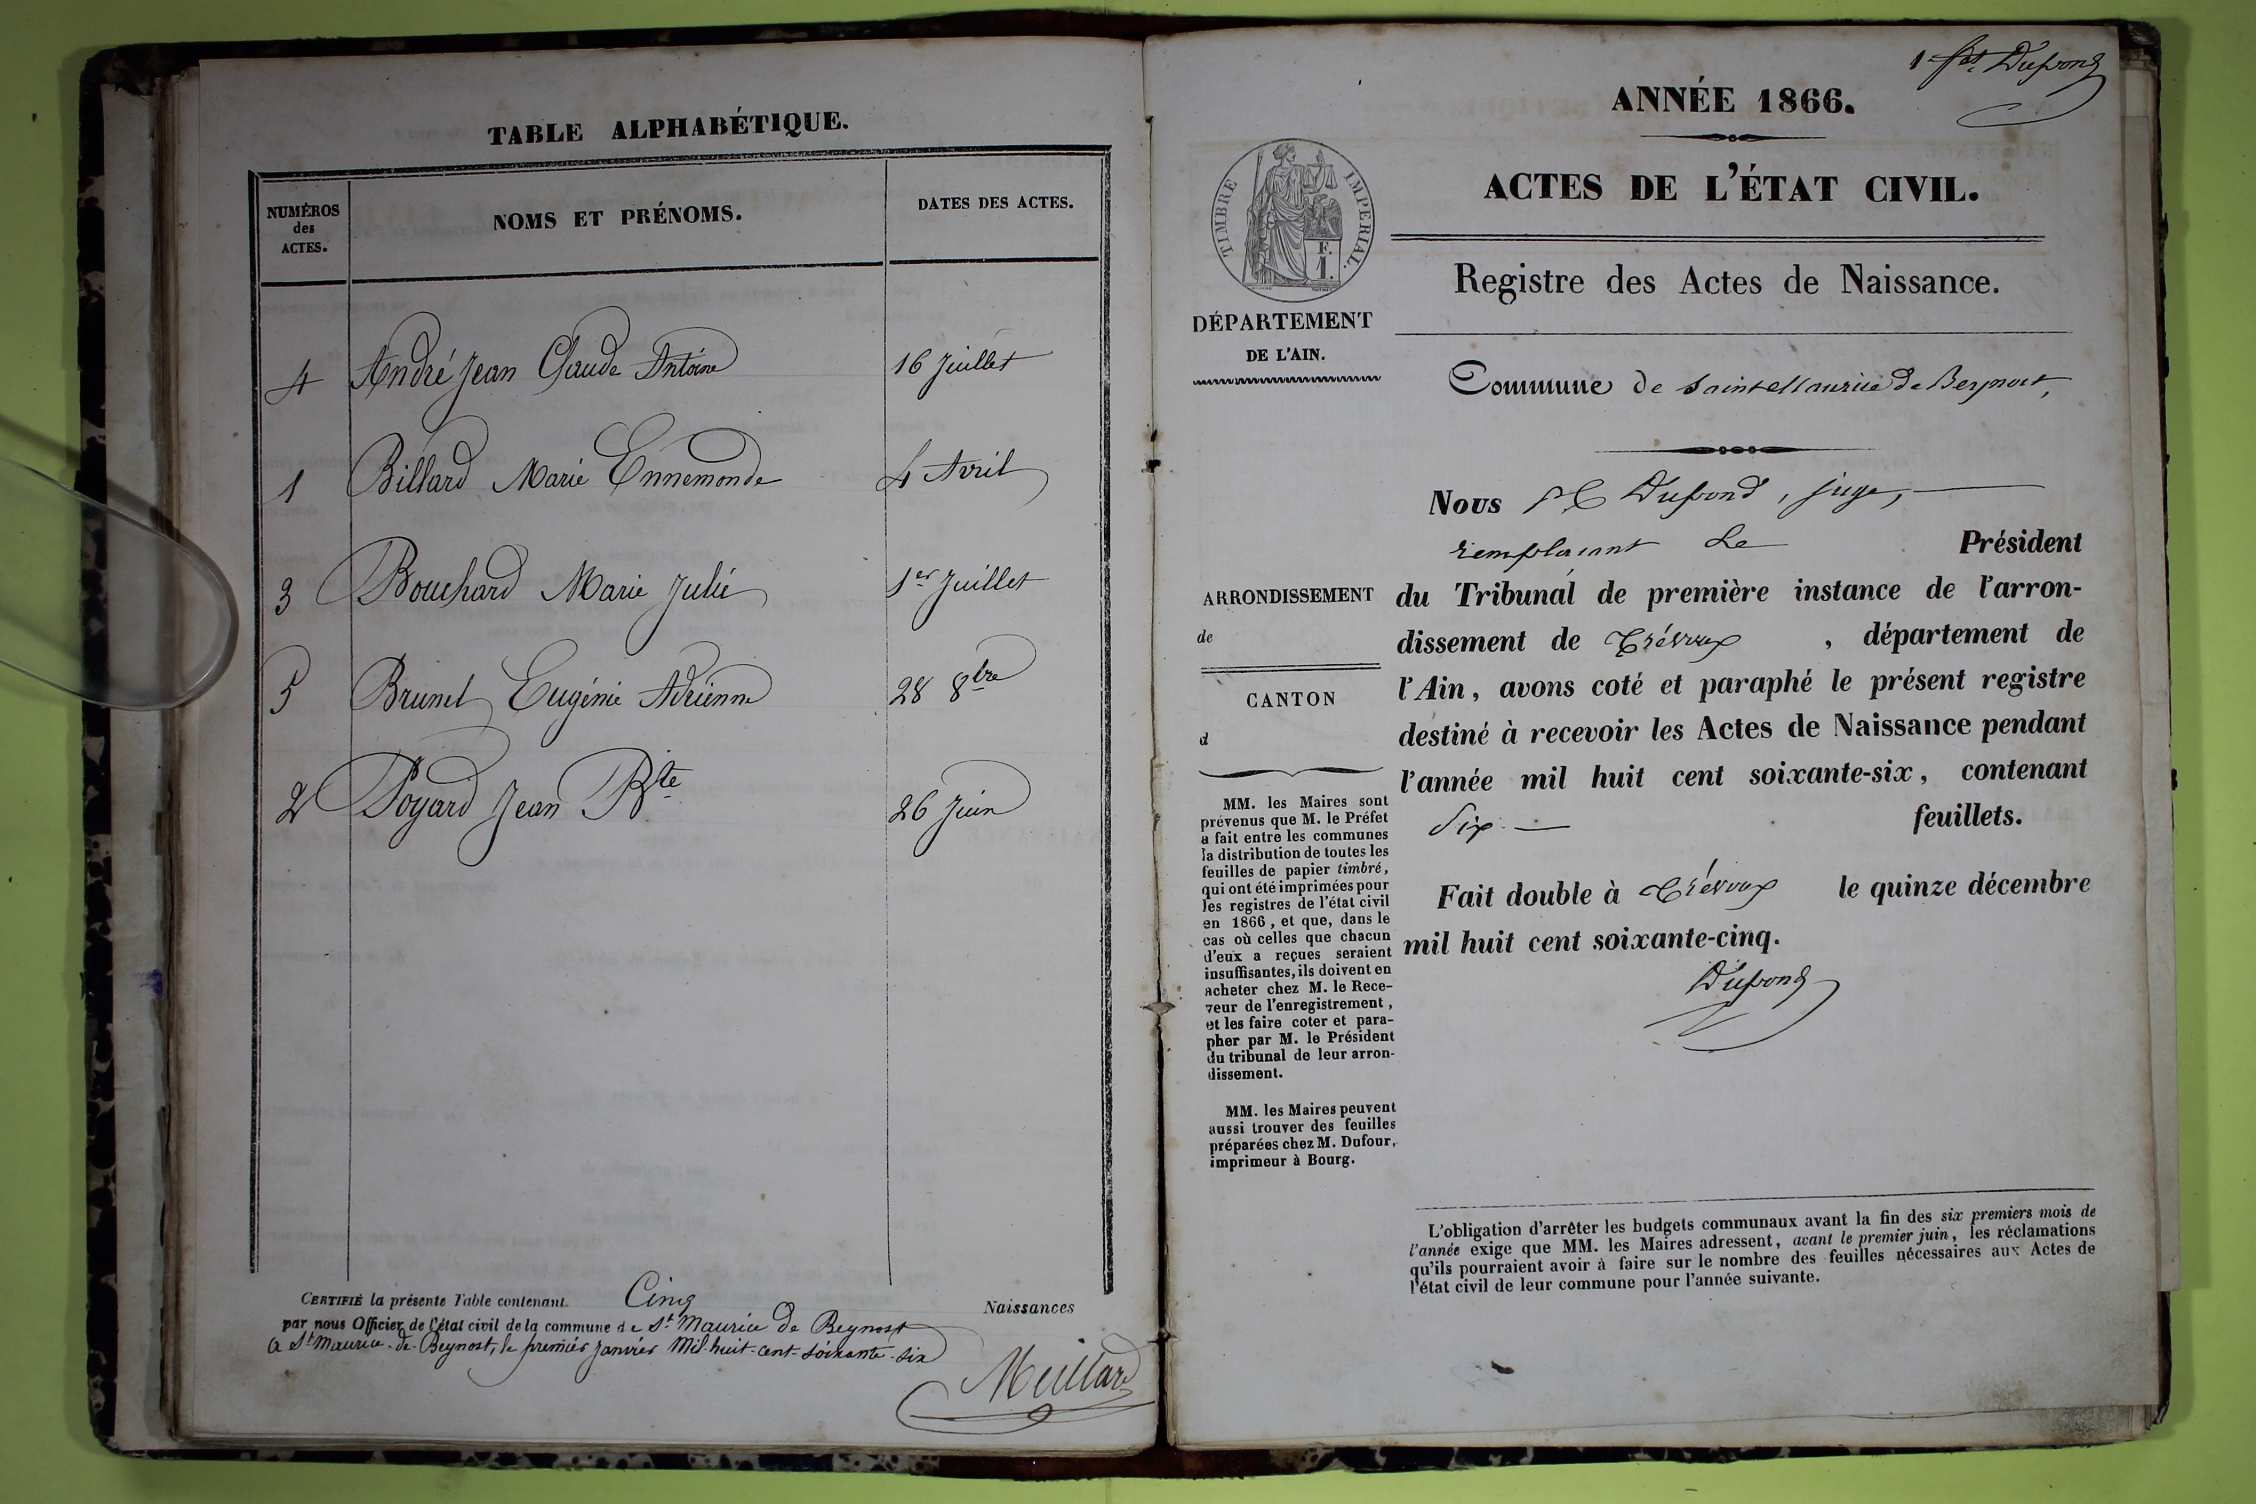 TABLE ALPHABÉTIQUE.
NUMÉROS
des
ACTES.
NOMS ET PRÉNOMS.
DATES DES ACTES.
4 André Jean Claude Antoine 16 Juillet
1 Billard Marie Ennemonde 4 Avril
3 Bouchard Marie Julie 1er Juillet
5 Brunet Eugénie Adrienne 28 8bre
2 Poyard Jean Bte 26 Juin
CERTIFIÉ la présente Table contenant Cinq Naissances
par nous Officier de l'état civil de la commune de St Maurice de Beynost
a St Maurice-de-Beynost, le premier Janvier Mil-huit-cent-soixante-six
Meillard
1er ft. Dupond
ANNÉE 1866.
ACTES DE L'ÉTAT CIVIL.
Registre des Actes de Naissance.
TIMBRE IMPERIAL.
F.
1.
DÉPARTEMENT
DE L'AIN.
Commune de Saint Maurice de Beynost,
Nous Dupond, juge,
remplacant Le Président
du Tribunal de première instance de l'arron-
dissement de Trévoux, département de
l'Ain, avons coté et paraphé le présent registre
destiné à recevoir les Actes de Naissance pendant
l'année mil huit cent soixante-six, contenant
Six feuillets.
Fait double à Trévoux le quinze décembre
mil huit cent soixante-cinq.
Dupond
ARRONDISSEMENT
de
CANTON
d
MM. les Maires sont
prévenus que M. le Préfet
a fait entre les communes
la distribution de toutes les
feuilles de papier timbré,
qui ont été imprimées pour
les registres de l'état civil
en 1866, et que, dans le
cas où celles que chacun
d'eux a reçues seraient
insuffisantes, ils doivent en
acheter chez M. le Rece-
veur de l'enregistrement,
et les faire coter et para-
pher par M. le Président
du tribunal de leur arron-
dissement.
MM. les Maires peuvent
aussi trouver des feuilles
préparées chez M. Dufour,
imprimeur à Bourg.
L'obligation d'arrêter les budgets communaux avant la fin des six premiers mois de
l'année exige que MM. les Maires adressent, avant le premier juin, les réclamations
qu'ils pourraient avoir à faire sur le nombre des feuilles nécessaires aux Actes de
l'état civil de leur commune pour l'année suivante.